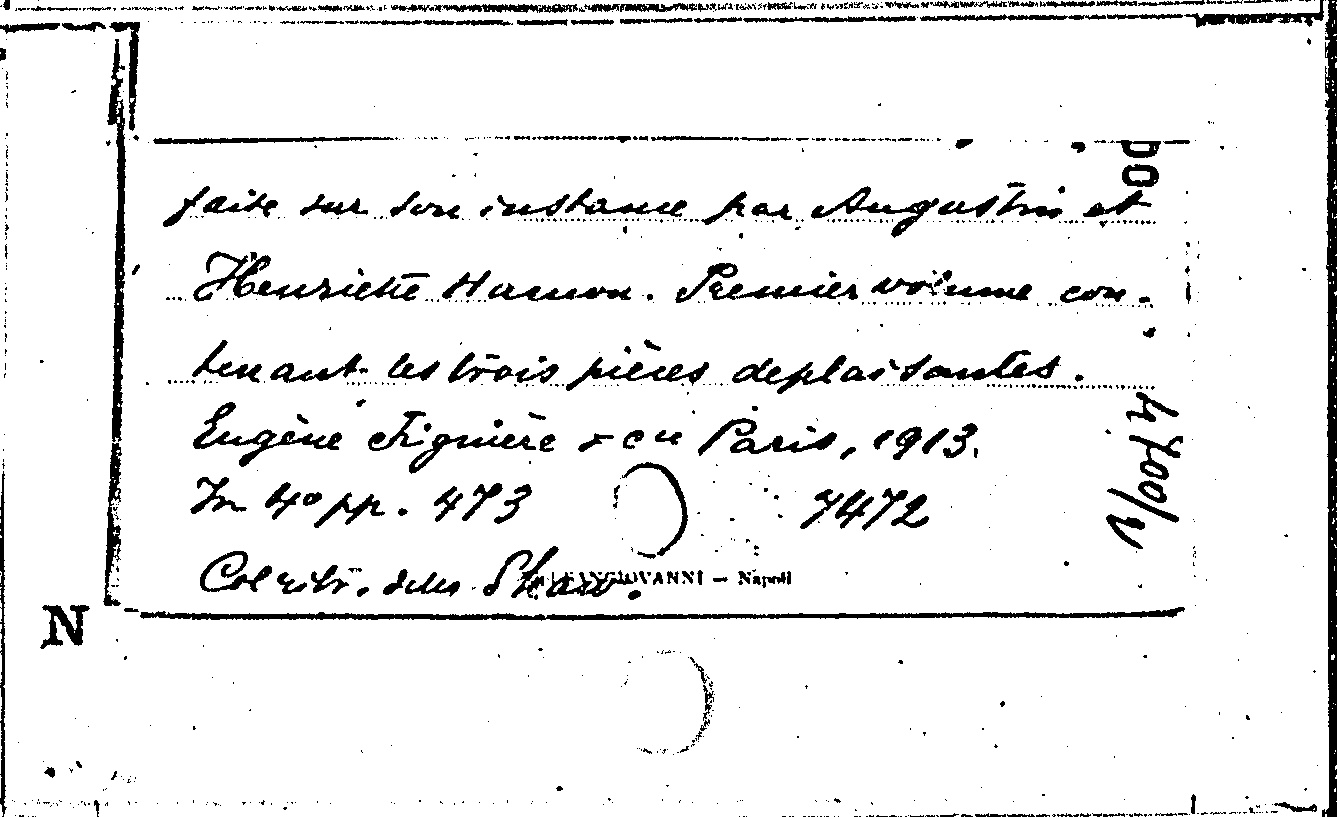 faite sur son instance par Augustin et
Henriette Hamon. Premier volume con-
tenant les trois pièces deplaisantes.
Eugène Figuière & Cie Paris, 1913.
In 4° pp. 473 7472
Col ritr. dello Shaw.
SANGIOVANNI — Napoli
4700/2
N